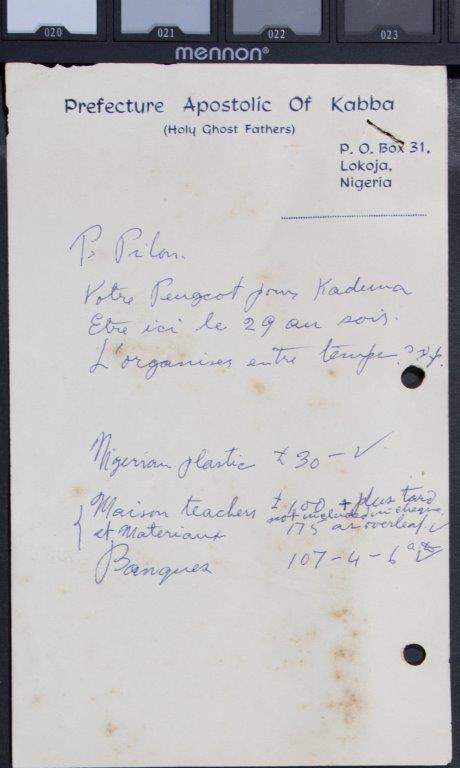 020 021 022 023
mennon®
Prefecture Apostolic Of Kabba
(Holy Ghost Fathers)
P. O. Box 31,
Lokoja,
Nigeria
Pilon.
Votre Peugeot pour Kaduna
Etre ici le 29 au soir.
L'organiser entre temps
Nigerian plastic £ 30 -
Maison teachers £ 400 + plus tard
not included in cheque
et Materiaux 175 as overleaf.
Banques 107-4-6